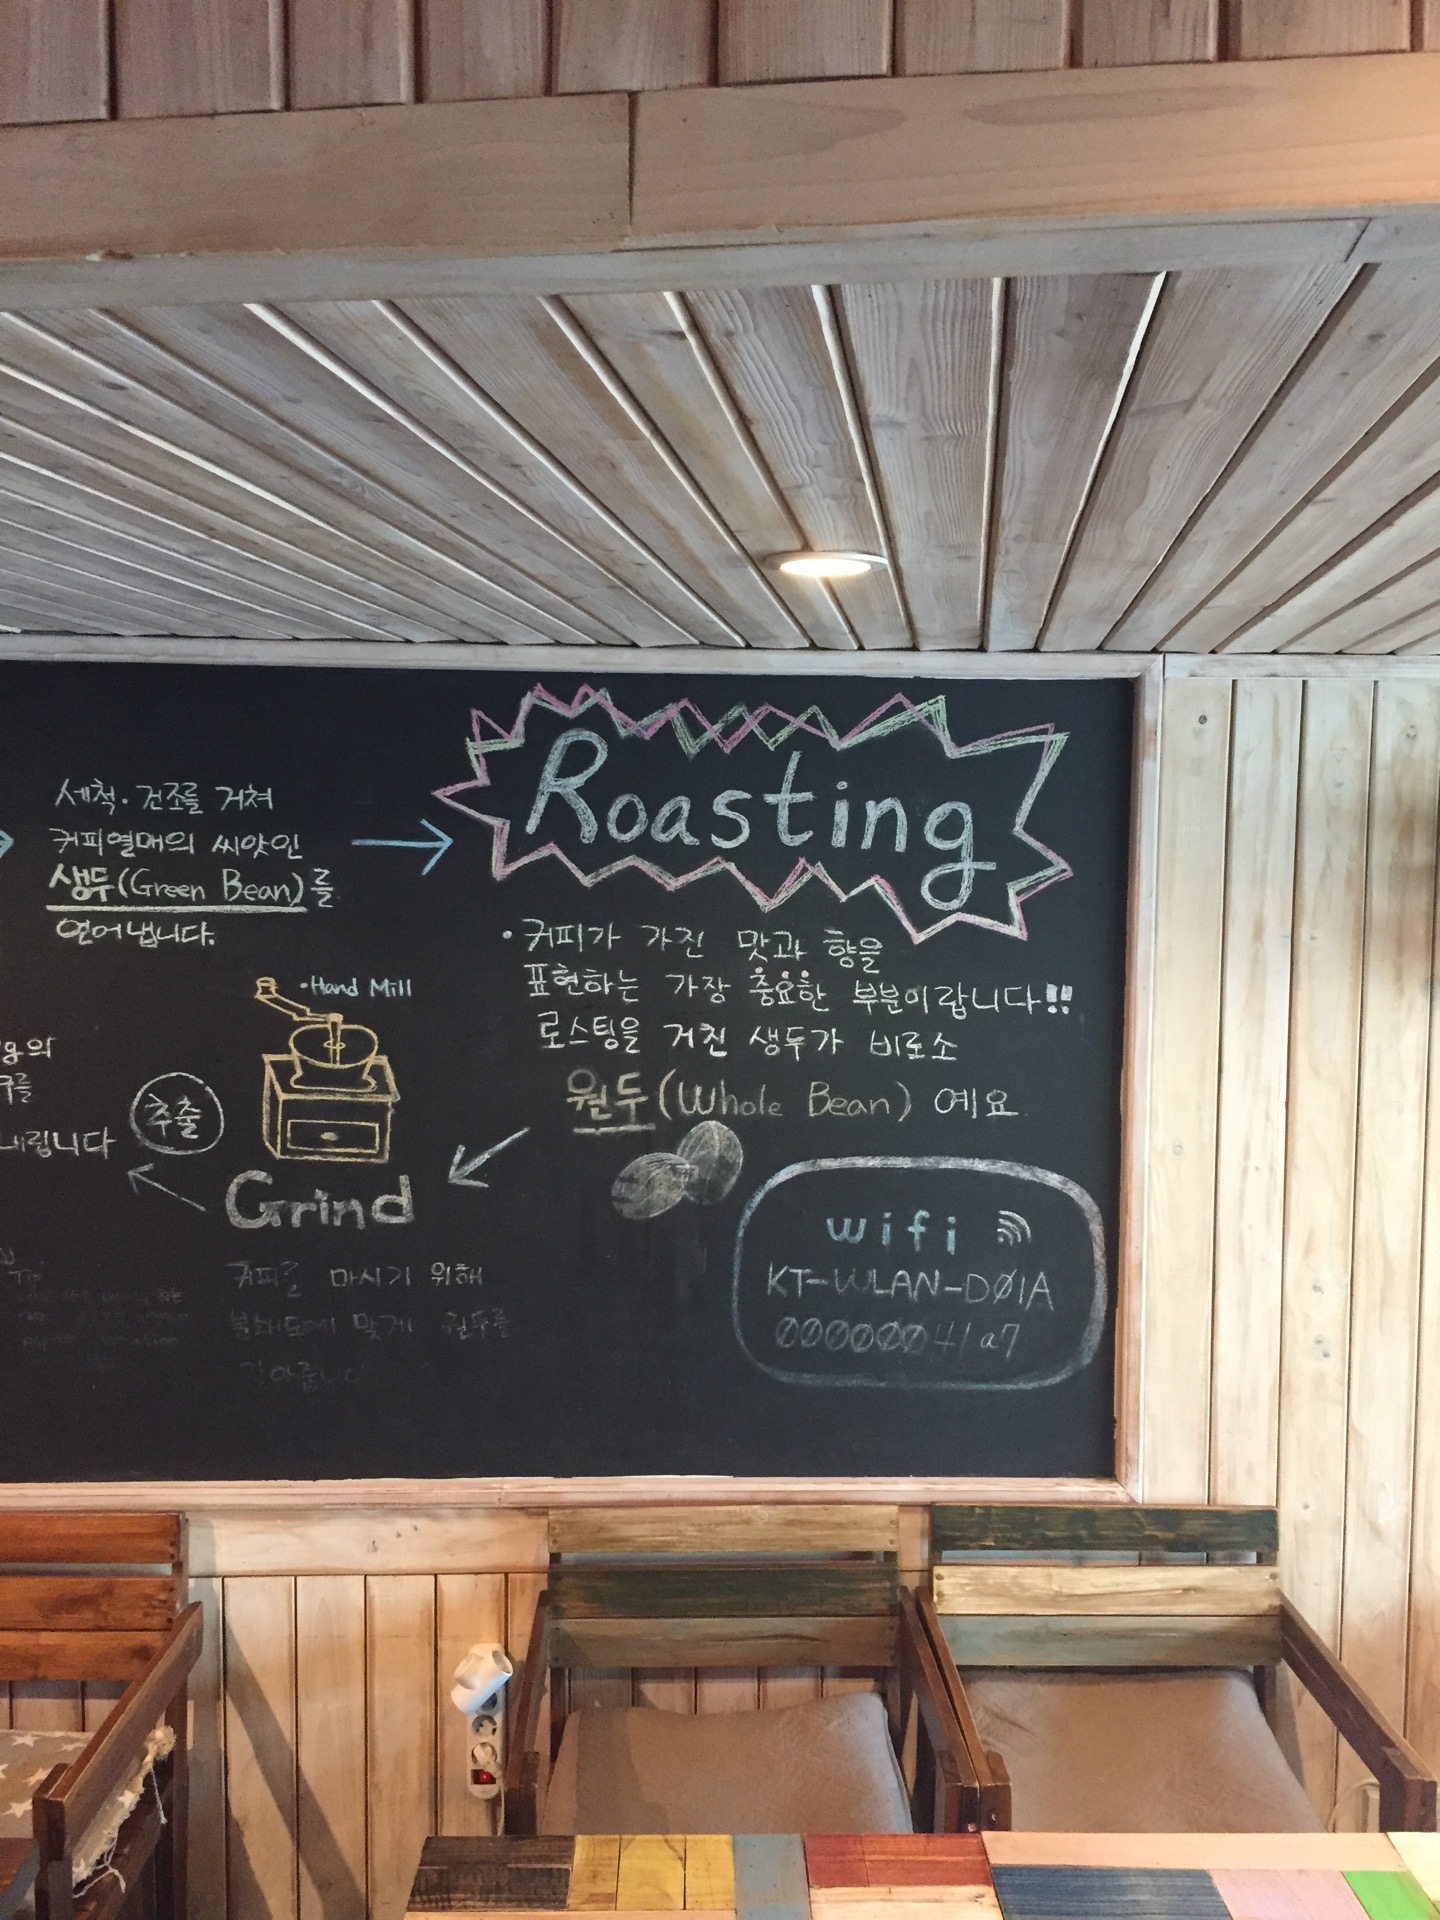 세척·건조를 거쳐
커피열매의 씨앗인
생두(Green Bean)를
얻어냅니다.
Roasting
·커피가 가진 맛과 향을
표현하는 가장 중요한 부분이랍니다!!
로스팅을 거친 생두가 비로소
원두(Whole Bean) 예요
·Hand Mill
Grind
커피를 마시기 위해
분쇄도에 맞게 원두를
갈아줍니다
추출
의
를
내립니다
Tip
wifi
KT-WLAN-D01A
00000041a7